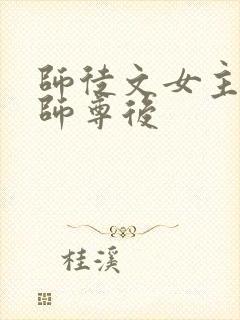 師徒文女主
師尊後
桂溪